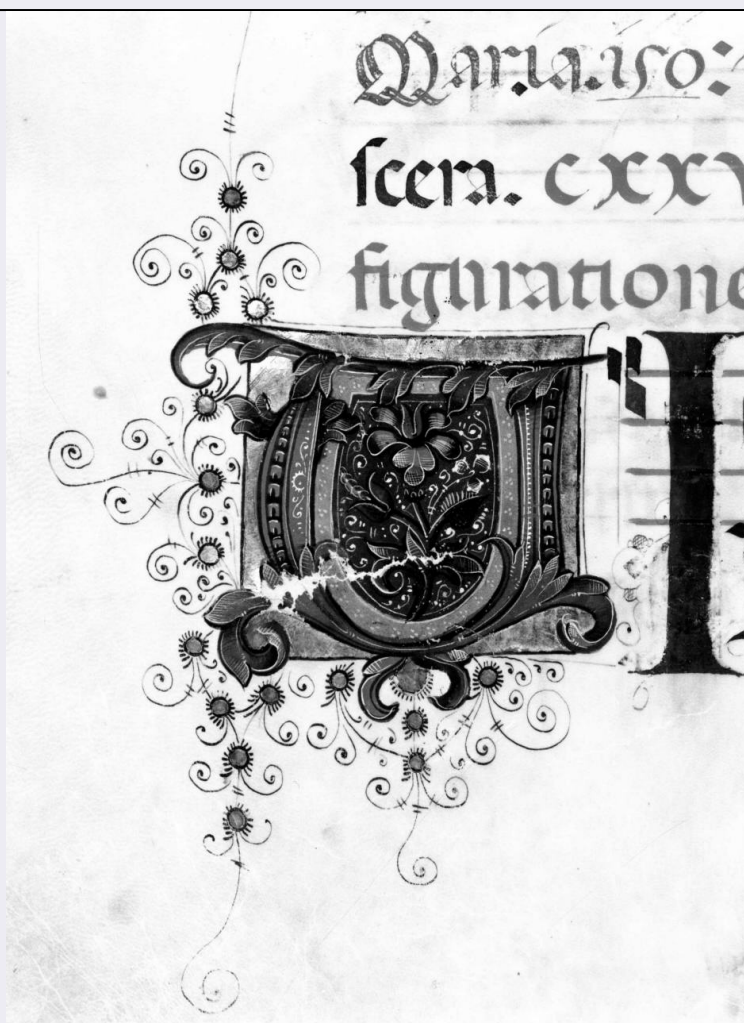 Maria. 150:
scera. cxxv
figuratione
UR